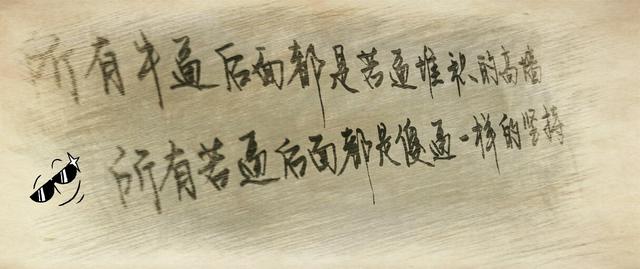 所有牛逼后面都是苦逼堆积的高墙
所有苦逼后面都是傻逼一样的坚持